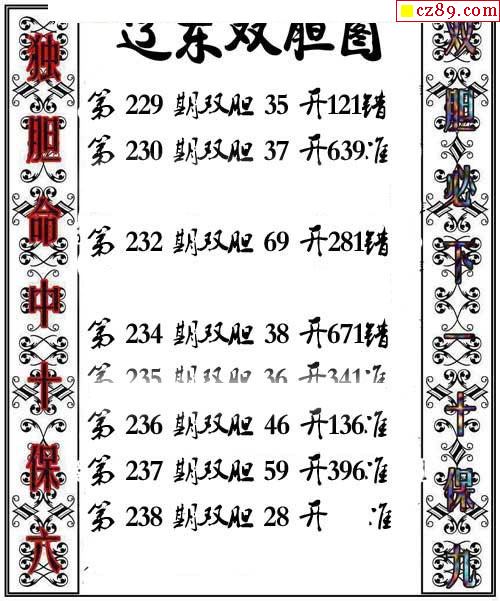 cz89.com
辽东双胆图
独胆命中十保六
第 229 期双胆 35 开121错
第 230 期双胆 37 开639准
第 232 期双胆 69 开281错
第 234 期双胆 38 开671错
第 235 期双胆 36 开341准
第 236 期双胆 46 开136准
第 237 期双胆 59 开396准
第 238 期双胆 28 开 准
双胆必下一十保九